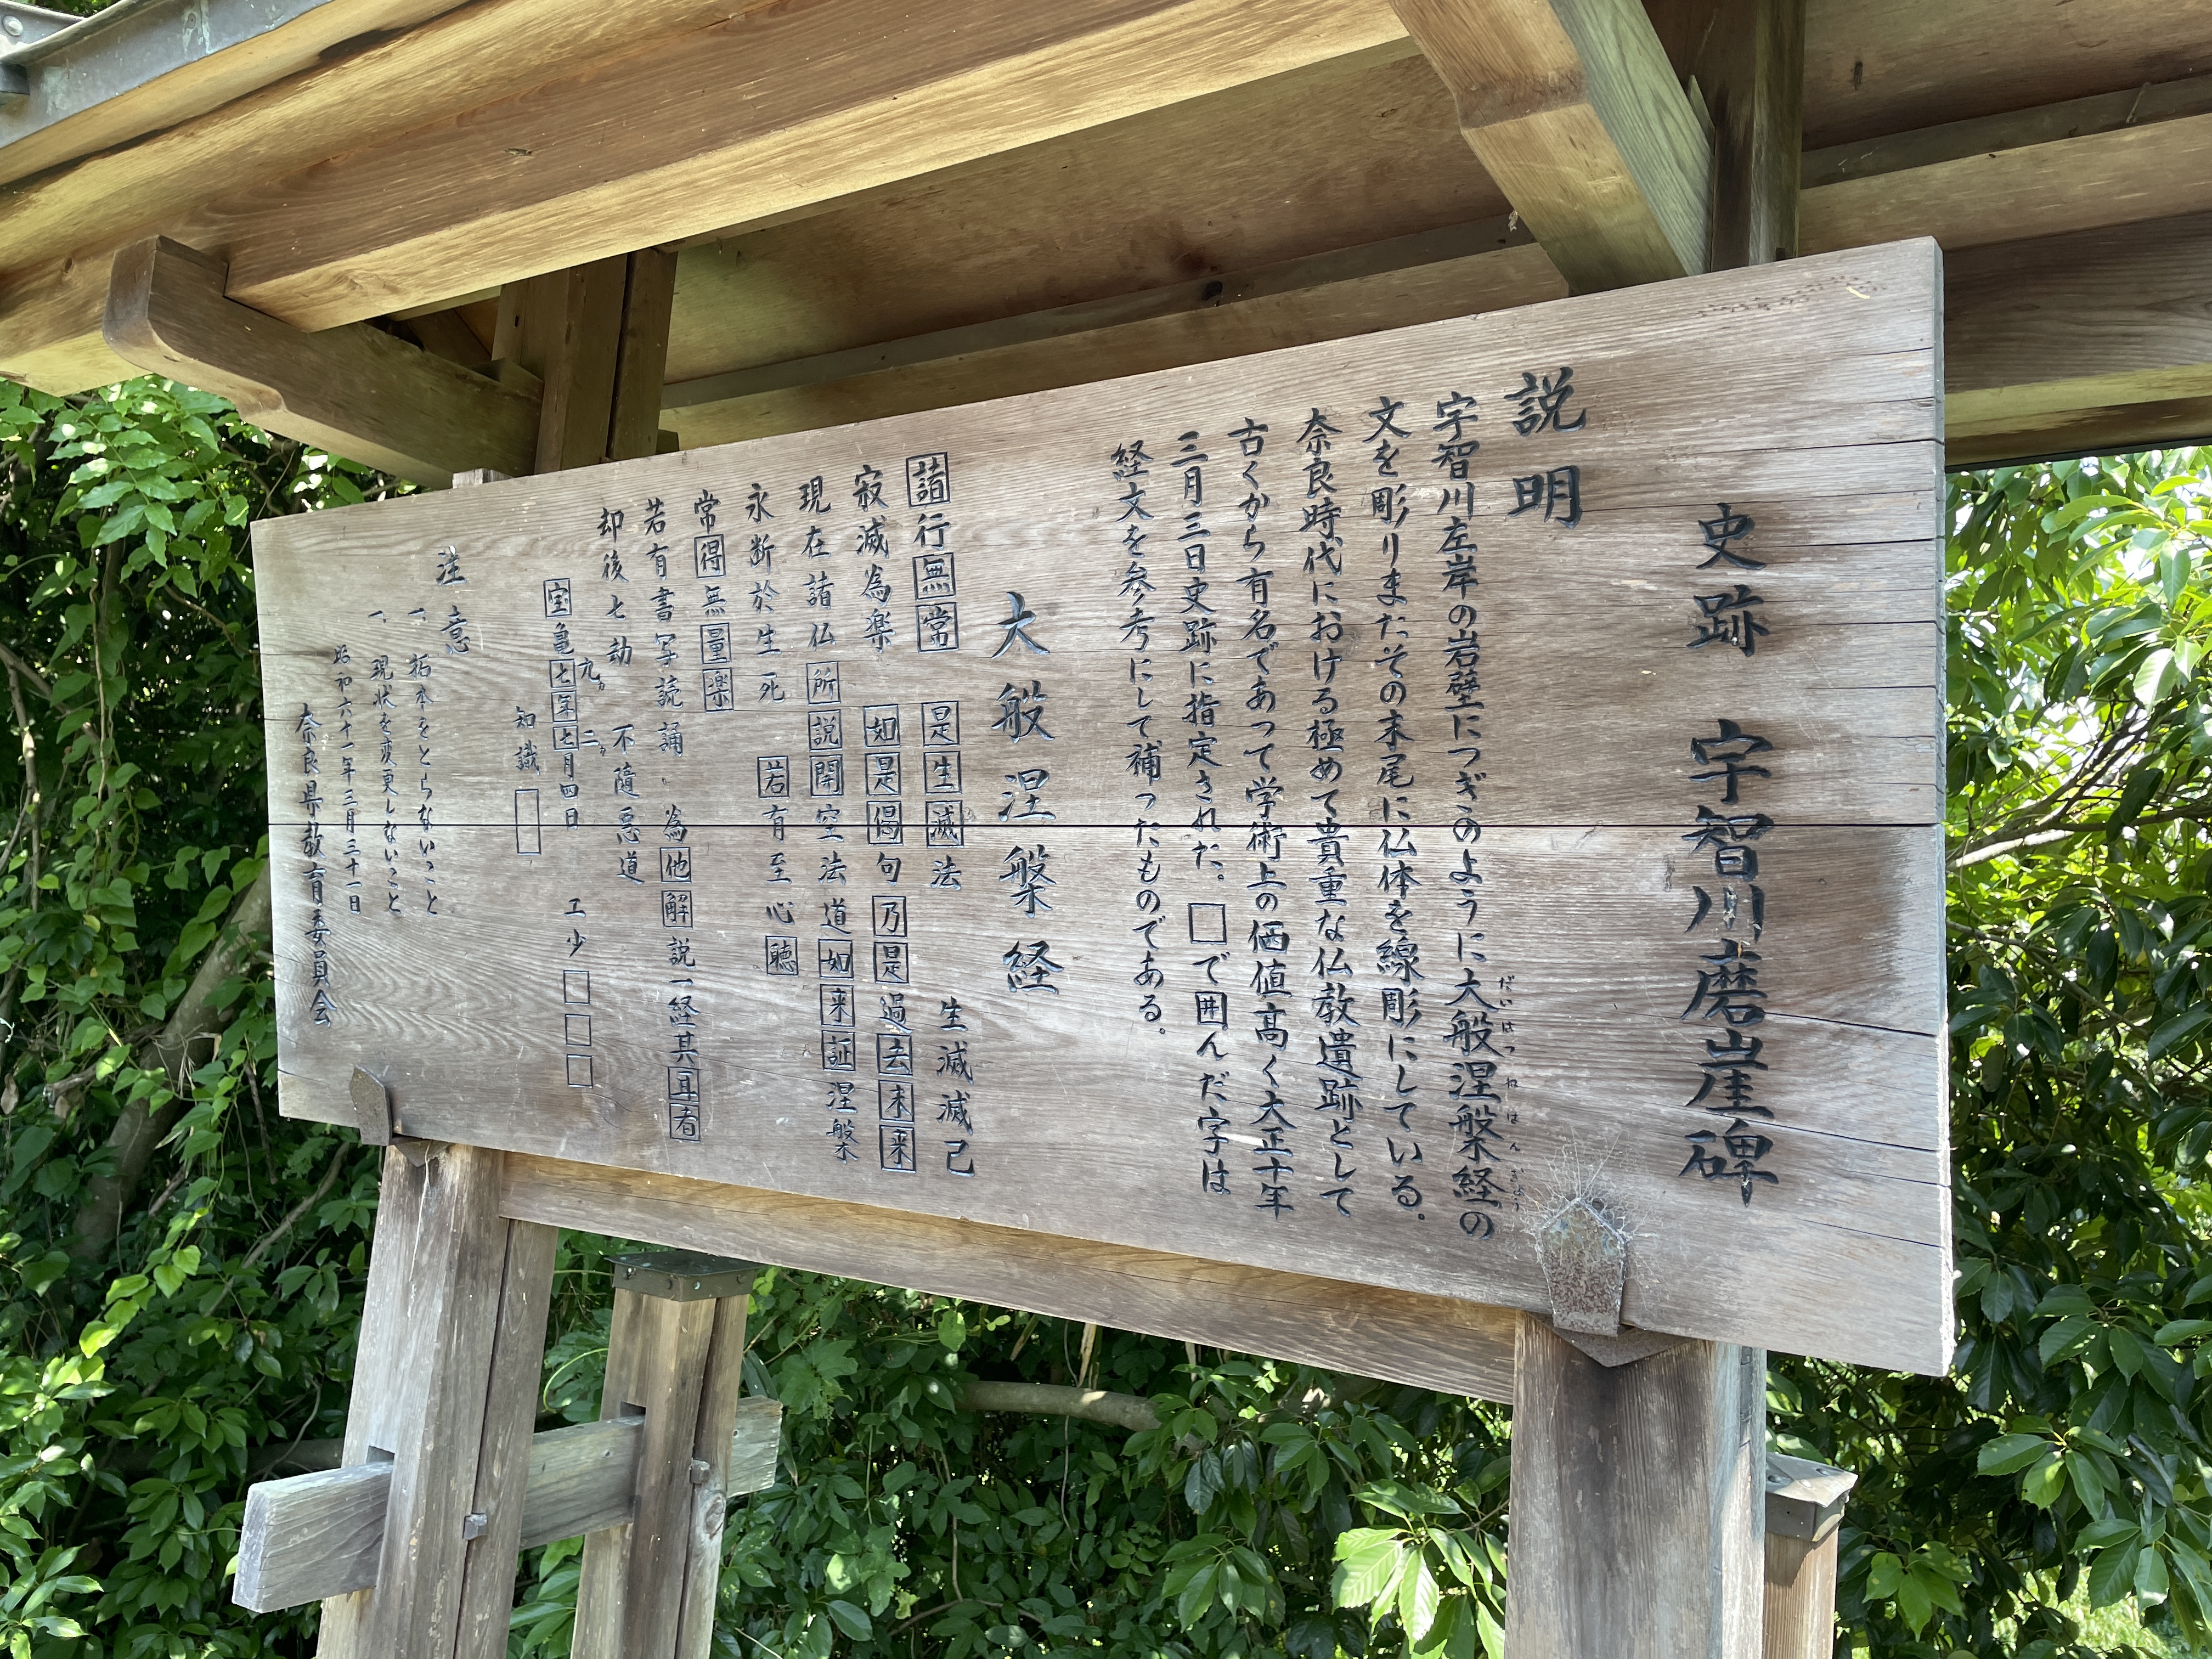 史跡 宇智川磨崖碑
説明
宇智川左岸の岩壁につぎのように大般涅槃経の
だいはつねはんぎょう
文を彫りまたその末尾に仏体を線彫にしている。
奈良時代における極めて貴重な仏教遺跡として
古くから有名であつて学術上の価値高く大正十年
三月三日史跡に指定された。□で囲んだ字は
経文を参考にして補つたものである。
大般涅槃経
諸行無常 是生滅法 生滅滅已
寂滅為楽 如是偈句 乃是過去未来
現在諸仏 所説開空法道 如来証涅槃
永断於生死 若有至心聴
常得無量楽
若有書写読誦 為他解説一経其耳者
却後七劫 不随悪道
九カ 二カ
宝亀七年七月四日 工少□□□
知識□
注意
一、拓本をとらないこと
一、現状を変更しないこと
昭和六十一年三月三十一日
奈良県教育委員会